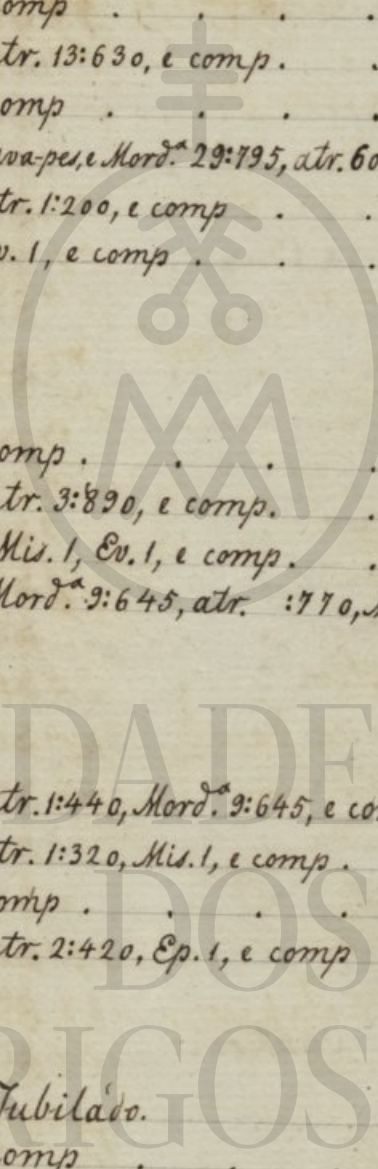 omp . . . .
tr. 13:630, e comp . .
omp . . . .
va-pes, e Mord.ª 29:795, atr. 60
tr. 1:200, e comp . .
v. 1, e comp . . .
omp . . . .
tr. 3:890, e comp. .
Mis. 1, Ev. 1, e comp. .
Mord.ª 9:645, atr. :770,
DADE
tr. 1:440, Mord.ª 9:645, e co
tr. 1:320, Mis. 1, e comp .
omp . . . .
DOS
tr. 2:420, Ep. 1, e comp
RIGOS
Jubilado.
omp . .